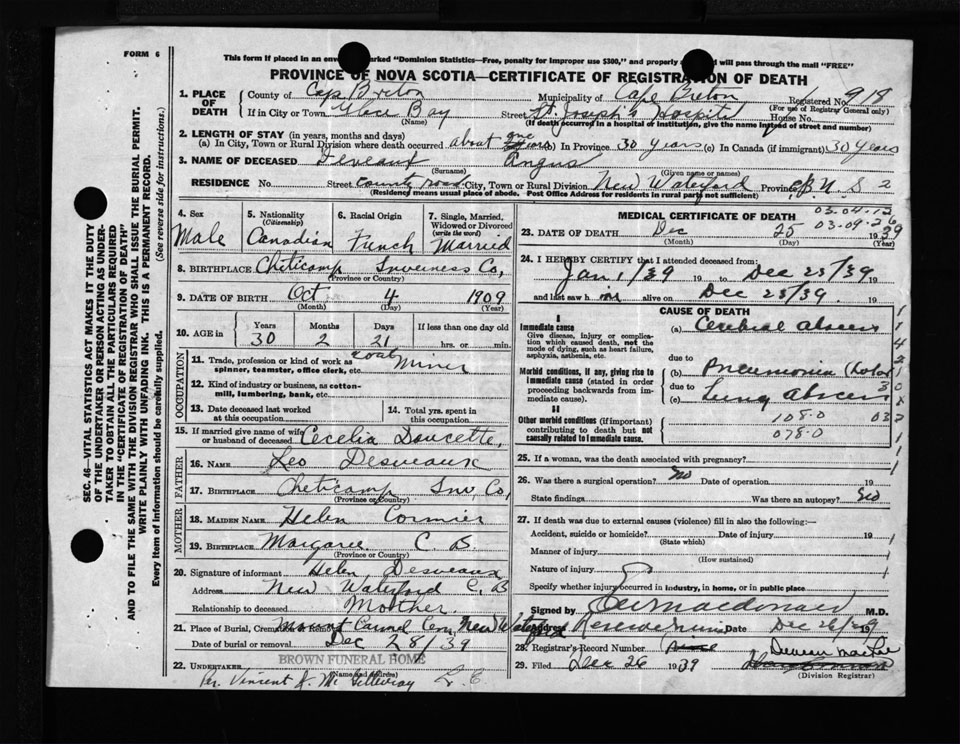 FORM 6
This form if placed in an enve rked "Dominion Statistics—Free, penalty for improper use $300," and properly a d will pass through the mail "FREE"
PROVINCE OF NOVA SCOTIA—CERTIFICATE OF REGISTRATION OF DEATH
1. PLACE OF DEATH
County of Cape Breton Municipality of Cape Breton Registered No. 918
(For use of Registrar General only)
If in City or Town Glace Bay (Name) Street St. Joseph's Hospital House No.
(If death occurred in a hospital or institution, give the name instead of street and number)
2. LENGTH OF STAY (in years, months and days)
(a) In City, Town or Rural Division where death occurred about one (b) In Province 30 years (c) In Canada (if immigrant) 30 years
3. NAME OF DECEASED Deveaux Angus
(Surname) (Given name or names)
RESIDENCE No. Street County Road City, Town or Rural Division New Waterford Province N.S
(Residency means usual place of abode. Post Office Address for residents in rural parts not sufficient)
4. Sex Male
5. Nationality (Citizenship) Canadian
6. Racial Origin French
7. Single, Married, Widowed or Divorced (write the word) Married
8. BIRTHPLACE Cheticamp Inverness Co,
(Province or Country)
9. DATE OF BIRTH Oct 4 1909
(Month) (Day) (Year)
10. AGE in Years 30 Months 2 Days 21 If less than one day old hrs. or min.
OCCUPATION
11. Trade, profession or kind of work as spinner, teamster, office clerk, etc. Coal Miner
12. Kind of industry or business, as cotton-mill, lumbering, bank, etc.
13. Date deceased last worked at this occupation
14. Total yrs. spent in this occupation
15. If married give name of wife or husband of deceased Cecelia Doucette,
FATHER
16. NAME Leo Desveaux
17. BIRTHPLACE Cheticamp Inv, Co,
(Province or Country)
MOTHER
18. MAIDEN NAME Helen Cormier
19. BIRTHPLACE Margaree C. B
(Province or Country)
20. Signature of informant Helen Desveaux
Address New Waterford C. B
Relationship to deceased Mother.
21. Place of Burial, Cremation or Removal Mount Carmel Cem, New Waterford
Date of burial or removal Dec 28/39
22. UNDERTAKER BROWN FUNERAL HOME
(Name and address)
Per. Vincent J. McGillivray
MEDICAL CERTIFICATE OF DEATH
03-04-12
03-09-26
23. DATE OF DEATH Dec 25 1939
(Month) (Day) (Year)
24. I HEREBY CERTIFY that I attended deceased from:
Jan 1/39 19 to Dec 25/39
and last saw him alive on Dec 25/39. 19
CAUSE OF DEATH
I
Immediate cause
Give disease, injury or complication which caused death, not the mode of dying, such as heart failure, asphyxia, asthenia, etc.
(a) Cerebral Abscess
due to
Morbid conditions, if any, giving rise to immediate cause (stated in order proceeding backwards from immediate cause).
(b) Pneumonia (Lobar
due to
(c) Lung Abscess
II
Other morbid conditions (if important) contributing to death but not causally related to immediate cause.
108.0
078.0
25. If a woman, was the death associated with pregnancy?
26. Was there a surgical operation? No Date of operation 19
State findings Was there an autopsy?
27. If death was due to external causes (violence) fill in also the following:—
Accident, suicide or homicide? Date of injury 19
(State which)
Manner of injury
(How sustained)
Nature of injury
Specify whether injury occurred in industry, in home, or in public place
Signed by M.D.
Address Reserve Mines Date Dec 26/39 19
28. Registrar's Record Number
29. Filed Dec 26 1939
(Division Registrar)
SEC. 46—VITAL STATISTICS ACT MAKES IT THE DUTY OF THE UNDERTAKER OR PERSON ACTING AS UNDERTAKER TO OBTAIN ALL THE PARTICULARS REQUIRED IN THE "CERTIFICATE OF REGISTRATION OF DEATH" AND TO FILE THE SAME WITH THE DIVISION REGISTRAR WHO SHALL ISSUE THE BURIAL PERMIT.
WRITE PLAINLY WITH UNFADING INK. THIS IS A PERMANENT RECORD.
Every item of information should be carefully supplied. (See reverse side for instructions.)